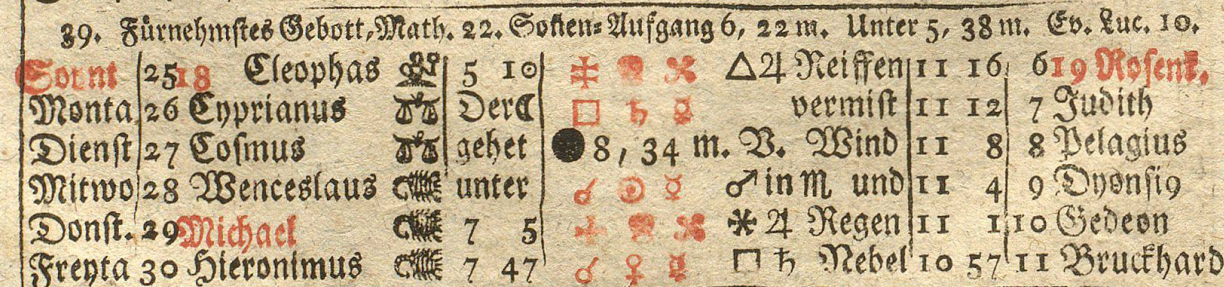 39. Fürnehmſtes Gebott, Math. 22. Soñen-Aufgang 6, 22 m. Unter 5, 38 m. Ev. Luc. 10.
Sonnt 25 18 Cleophas 5 10 △ ♃ Reiffen 11 16 6 19 Roſenk.
Monta 26 Cyprianus ♎ Der ☾ □ ♄ ☿ vermiſt 11 12 7 Judith
Dienſt 27 Coſmus ♎ gehet ● 8, 34 m. V. Wind 11 8 8 Pelagius
Mitwo 28 Wenceslaus unter ☌ ☉ ☿ ♂ in ♏ und 11 4 9 Dyonſiꝰ
Donſt. 29 Michael 7 5 ⚹ ♃ Regen 11 1 10 Gedeon
Freyta 30 Hieronimus 7 47 ☌ ♀ □ ♄ Nebel 10 57 11 Bruckhard